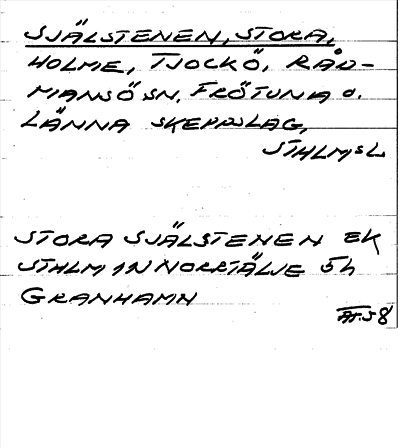 SJÄLSTENEN, STORA,
HOLME, TJOCKÖ, RÅD-
MANSÖ SN. FRÖTUNA O.
LÄNNA SKEPPSLAG,
STHLMSL.
STORA SJÄLSTENEN EK
STHLM 1N NORRTÄLJE 5h
GRANHAMN